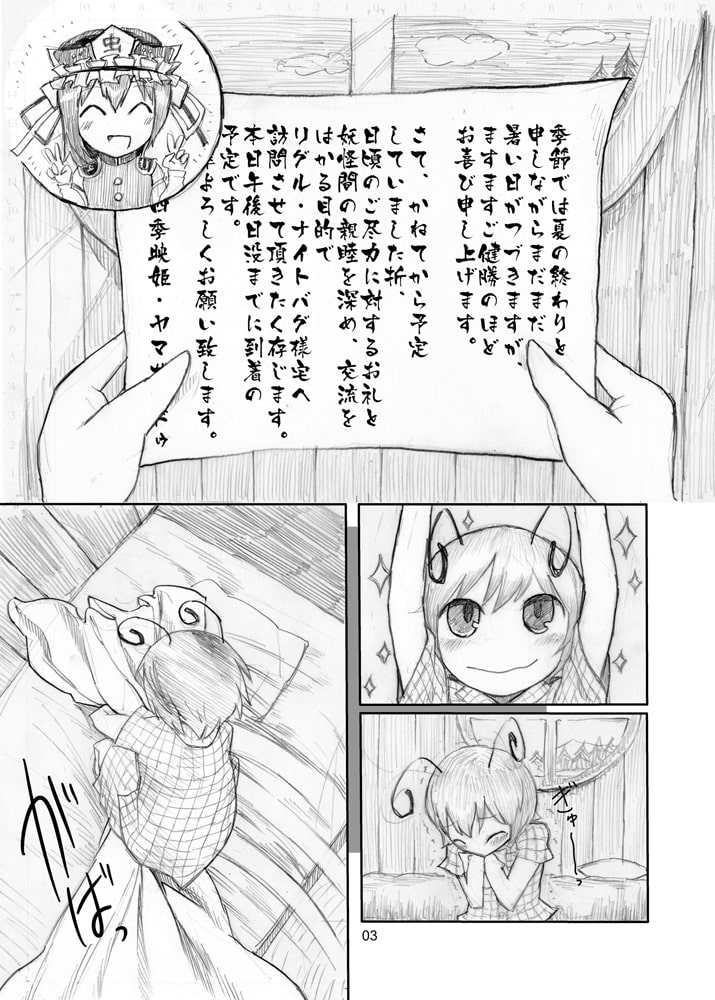 虫
季節では夏の終わりと
申しながらまだまだ
暑い日がつづきますが、
ますますご健勝のほど
お喜び申し上げます。
さて、かねてから予定
していました折、
日頃のご尽力に対するお礼と
妖怪間の親睦を深め、交流を
はかる目的で
リグル・ナイトバグ様宅へ
訪問させて頂きたく存じます。
本日午後日没までに到着の
予定です。
よろしくお願い致します。
四季映姫・ヤマ
ぎゅーっ
がばっ
03